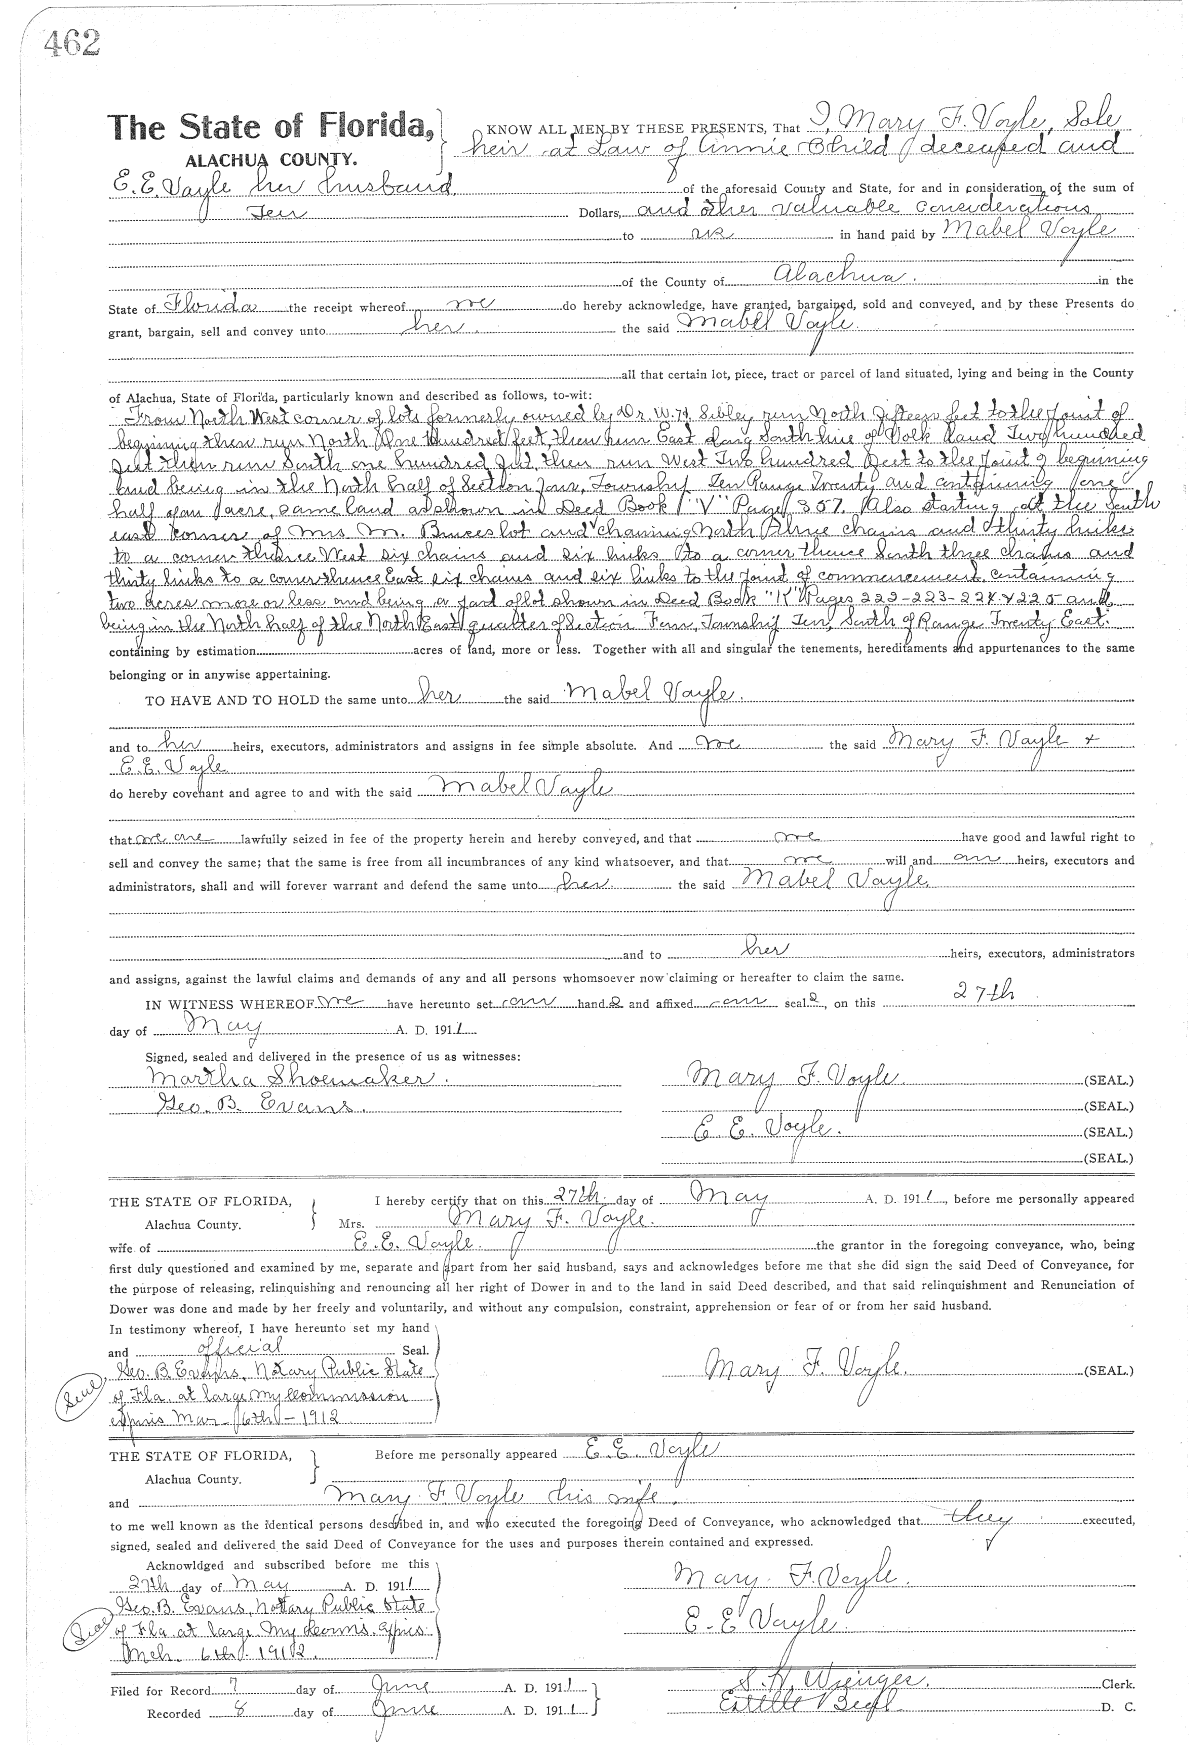 462
The State of Florida, KNOW ALL MEN BY THESE PRESENTS, That I, Mary F. Voyle, Sole
ALACHUA COUNTY. heir at Law of Annie Child deceased and
E. E. Voyle her husband of the aforesaid County and State, for and in consideration of the sum of
Ten Dollars, and other valuable considerations
to us in hand paid by Mabel Voyle
of the County of Alachua. in the
State of Florida the receipt whereof we do hereby acknowledge, have granted, bargained, sold and conveyed, and by these Presents do
grant, bargain, sell and convey unto her. the said Mabel Voyle.
all that certain lot, piece, tract or parcel of land situated, lying and being in the County
of Alachua, State of Florida, particularly known and described as follows, to-wit:
From North West corner of lots formerly owned by Dr. W. H. Sibley run North fifteen feet to the point of
beginning then run North One hundred feet, then run East along South line of Volk land Two hundred
feet then run South one hundred feet, then run West Two hundred feet to the point of beginning
and being in the North half of Section four, Township Ten Range Twenty and containing one
half of an acre, same land as shown in Deed Book "V" Page 357. Also starting at the South
east corner of Mrs. M. Bruces lot and chaining North three chains and thirty links
to a corner thence West six chains and six links to a corner thence South three chains and
thirty links to a corner thence East six chains and six links to the point of commencement, containing
two acres more or less and being a part of lot shown in Deed Book "K" Pages 222-223-224 & 225 and
being in the North half of the North East quarter of Section Four, Township Ten, South of Range Twenty East.
containing by estimation acres of land, more or less. Together with all and singular the tenements, hereditaments and appurtenances to the same
belonging or in anywise appertaining.
TO HAVE AND TO HOLD the same unto her the said Mabel Voyle.
and to her heirs, executors, administrators and assigns in fee simple absolute. And we the said Mary F. Voyle +
E. E. Voyle
do hereby covenant and agree to and with the said Mabel Voyle
that we are lawfully seized in fee of the property herein and hereby conveyed, and that we have good and lawful right to
sell and convey the same; that the same is free from all incumbrances of any kind whatsoever, and that we will and our heirs, executors and
administrators, shall and will forever warrant and defend the same unto her. the said Mabel Voyle.
and to her heirs, executors, administrators
and assigns, against the lawful claims and demands of any and all persons whomsoever now claiming or hereafter to claim the same.
IN WITNESS WHEREOF we have hereunto set our hand s and affixed our seal s, on this 27th
day of May A. D. 1911
Signed, sealed and delivered in the presence of us as witnesses:
Martha Shoemaker. Mary F. Voyle. (SEAL.)
Geo. B. Evans. (SEAL.)
E. E. Voyle. (SEAL.)
(SEAL.)
THE STATE OF FLORIDA, I hereby certify that on this 27th day of May A. D. 1911, before me personally appeared
Alachua County. Mrs. Mary F. Voyle.
wife of E. E. Voyle. the grantor in the foregoing conveyance, who, being
first duly questioned and examined by me, separate and apart from her said husband, says and acknowledges before me that she did sign the said Deed of Conveyance, for
the purpose of releasing, relinquishing and renouncing all her right of Dower in and to the land in said Deed described, and that said relinquishment and Renunciation of
Dower was done and made by her freely and voluntarily, and without any compulsion, constraint, apprehension or fear of or from her said husband.
In testimony whereof, I have hereunto set my hand
and official Seal.
Geo. B. Evans, Notary Public State Mary F. Voyle. (SEAL)
Seal of Fla. at large My Commission
expires Mar 6th - 1912
THE STATE OF FLORIDA, Before me personally appeared E. E. Voyle
Alachua County.
and Mary F. Voyle his wife.
to me well known as the identical persons described in, and who executed the foregoing Deed of Conveyance, who acknowledged that they executed,
signed, sealed and delivered the said Deed of Conveyance for the uses and purposes therein contained and expressed.
Acknowldged and subscribed before me this
27th day of May A. D. 1911 Mary F. Voyle.
Geo. B. Evans, Notary Public State
Seal of Fla. at large My Comms. expires E. E Voyle.
Mch. 6th. 1912.
Filed for Record 7 day of June A. D. 1911 S. H. Wienges. Clerk.
Recorded 8 day of June A. D. 1911 Estelle D. C.